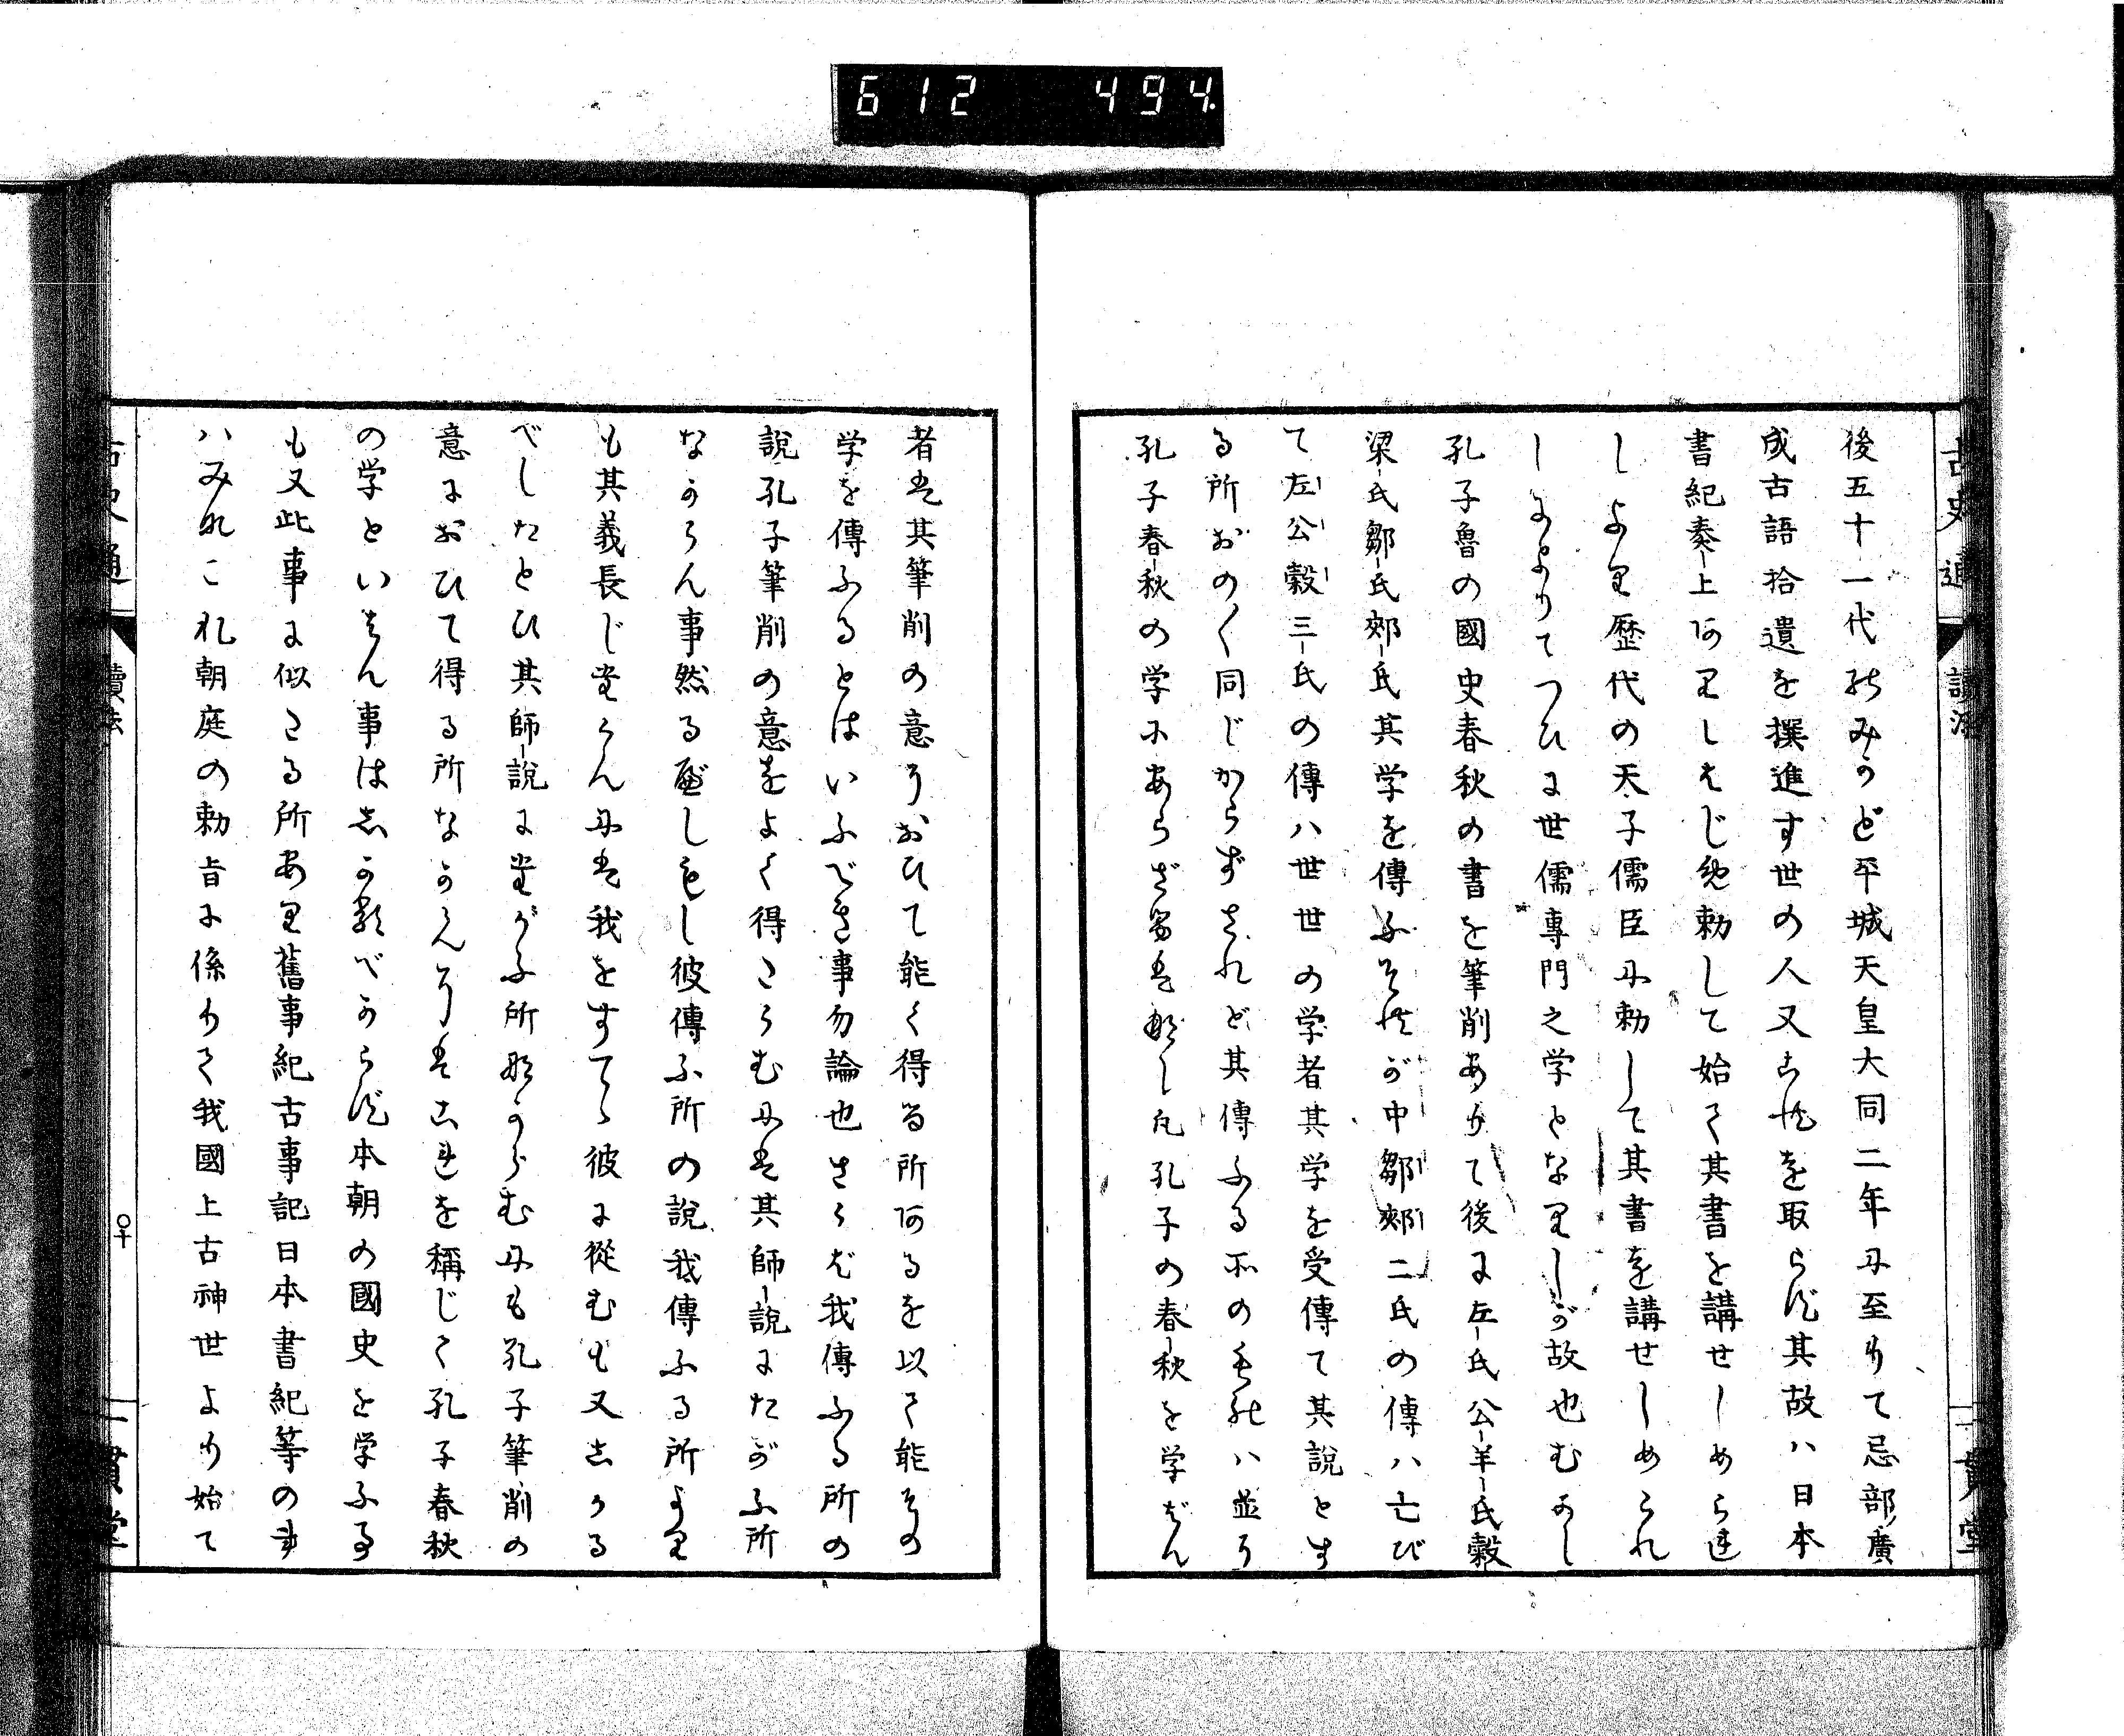 612 494
古史通 讀法 一貫堂
後五十一代のみかど平城天皇大同二年に至りて忌部廣
成古語拾遺を撰進す世の人又これを取らず其故ハ日本
書紀奏上ありしはじめ勅して始て其書を講せしめられ
しより歴代の天子儒臣に勅して其書を講せしめられ
しによりてつひに世儒專門之学となりしが故也むかし
孔子魯の國史春秋の書を筆削ありて後に左氏公羊氏穀
梁氏鄒氏郟氏其学を傳ふそれが中鄒郟二氏の傳ハ亡び
て左公穀三氏の傳ハ世世の学者其学を受傳て其說とす
る所おの〱同じからずされど其傳ふる所のものハ並に
孔子春秋の学にあらざるはなし凡孔子の春秋を学ばん
者は其筆削の意におひて能く得る所あるを以て能その
学を傳ふるとはいふべき事勿論也さらば我傳ふる所の
說孔子筆削の意をよく得たらむには其師說にたがふ所
なからん事然る歟しもし彼傳ふ所の說我傳ふる所より
も其義長じたらんには我をすてゝ彼に從むも又しかる
べしたとひ其師說にたがふ所なからむにも孔子筆削の
意におひて得る所なからんにはこれを稱じて孔子春秋
の学といはん事はしかるべからず本朝の國史を学ふ事
も又此事に似たる所あり舊事紀古事記日本書紀等のす
ハみなこれ朝庭の勅旨に係りて我國上古神世より始て
古史通 讀法 一貫堂